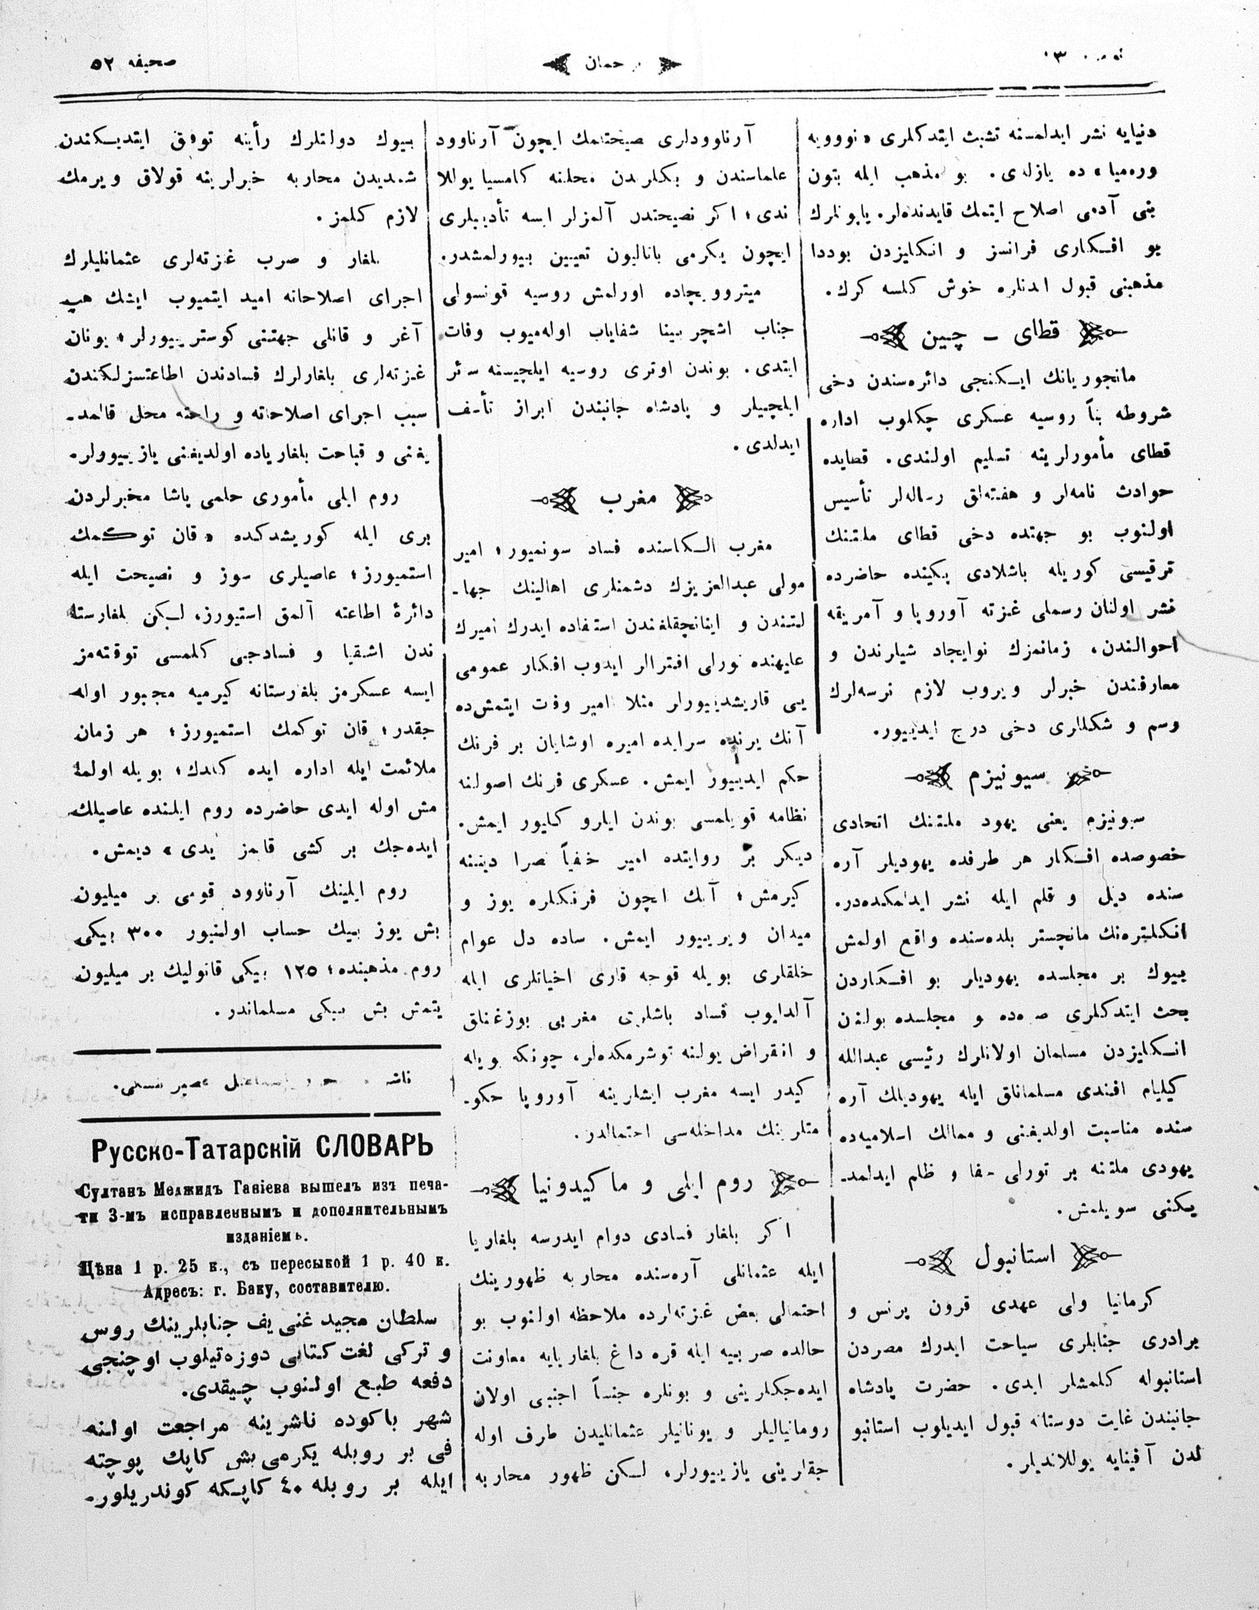 صحیفه ٥٢
دنیایه نشر ایدلمسنه تشبث ایتدکلری «نوویه
ورەمیا» ده یازلدی. بو مذهب ایله بتون
بنی آدمی اصلاح ایتمك قایدندەلر. یاپونلرك
بو افـکاری فرانسز و انکلیزدن بوددا
مذهبنی قبول ایدنلره خوش کلسه کرك.
قطای ـ چین
مانجوریانك ایـکنجی دائرەسندن دخی
شروطه بناً روسیه عسکری چکلوب اداره
قطای مأمورلرینه تسلیم اولندی. قطایده
حوادث نامەلر و هفتەلق رسالەلر تأسیس
اولنوب بو جهتده دخی قطای ملتنك
ترقیسی کوریله باشلادی پکینده حاضرده
نشر اولنان رسملی غزته آوروپا و آمریقه
احوالندن، زمانمزك نوایجاد شیلرندن و
معارفندن خبرلر ویروب لازم نرسەلرك
رسم و شکللری دخی درج ایدییور.
سیونیزم
سیونیزم یعنی یهود ملتنك اتحادی
خصوصده افـکار هر طرفده یهودیلر آره
سنده دیل و قلم ایله نشر ایدلمکدەدر.
انکلتیرەنك مانچستر بلدەسنده واقع اولمش
بیوك بر مجلسده یهودیلر بو افـکاردن
بحث ایتدکلری صرەده و مجلسده بولنن
انـکلیزدن مسلمان اولانلرك رئیسی عبدالله
کیلیام افندی مسلمانلق ایله یهودیلك آره
سنده مناسبت اولدیغنی و ممالك اسلامیەده
یهودی ملتنه بر تورلی جفا و ظلم ایدلمد۔
یکنی سویلمش.
استانبول
کرمانیا ولی عهدی قرون پرنس و
برادری جنابلری سیاحت ایدرك مصردن
استانبوله کلمشلر ایدی. حضرت پادشاه
جانبندن غایت دوستانه قبول ایدیلوب استانبو
لدن آفینایه یوللاندیلر.
آرناوودلری صیحتلمك ایچون آرناوود
علماسندن و بکلردن محلنه کامسیا یوللا
ندی؛ اکر نصیحتدن آلمزلر ایسه تأدیبلری
ایچون یکرمی باتالیون تعیین بیورلمشدر.
میتروویچاده اورلمش روسیه قونسولی
جناب اشچربینا شفایاب اولەمیوب وفات
ایتدی. بوندن اوتری روسیه ایلچیسنه سائر
ایلچیلر و پادشاه جانبندن ابراز تأسف
ایدلدی.
مغرب
مغرب الـکاسنده فساد سونمیور؛ امیر
مولی عبدالعزیزك دشمنلری اهالینك جها۔
لتندن و اینانچقلغندن استفاده ایدرك امیرك
علیهنده تورلی افترالر ایدوب افکار عمومی
یی قاریشدیییورلر مثلا امیر وفت ایتمش‌ده
آنك یرنده سرایده امیره اوشایان بر فرنك
حکم ایدییور ایمش. عسکری فرنك اصولنه
نظامه قویلمسی بوندن ایلرو کلیور ایمش.
دیکر بر روایتده امیر خفیاً نصرا دیننه
کیرمش؛ آنك ایچون فرنکلره یوز و
میدان ویرییور ایمش. ساده دل عوام
خلقلری بویله قوجه قاری اخیانلری ایله
آلدایوب فساد باشلری مغربی بوزغنلق
و انقراض یولنه توشرمکدەلر، چونکه بویله
کیدر ایسه مغرب ایشلرینه آوروپا حکو۔
متلرینك مداخلەسی احتمالدر.
روم ایلی و ماکیدونیا
اکر بلغار فسادی دوام ایدرسه بلغاریا
ایله عثمانلی آرەسنده محاربه ظهورینك
احتمالی بعض غزتەلرده ملاحظه اولنوب بو
حالده صربیه ایله قره داغ بلغاریایه معاونت
ایدەجکلرینی و بونلره جنساً اجنبی اولان
رومانیالیلر و یونانیلر عثمانلیدن طرف اوله
جقلرینی یازییورلر، لـکن ظهور محاربه
بیوك دولتلرك رأینه توفق ایتدیـکندن
شمدیدن محاربه خبرلرینه قولاق ویرمك
لازم کلمز.
بلغار و صرب غزتەلری عثمانلیلرك
اجرای اصلاحانه امید ایتمیوب ایشك هپ
آغر و قانلی جهتنی کوسترییورلر؛ یونان
غزتەلری بلغارلرك فسادندن اطاعتسزلـکندن
سبب اجرای اصلاحاته و راحته محل قالمد۔
یغنی و قباحت بلغاریاده اولدیغنی یازییوولر۔
روم ایلی مأموری حلمی پاشا مخبرلردن
بری ایله کوریشدکده «قان توکمك
استمیورز؛ عاصیلری سوز و نصیحت ایله
دائرۀ اطاعته آلمق استیورز، لـیکن بلغارستا
ندن اشقیا و فسادجیی کلمسی توقتەمز
ایسه عسکرمز بلغارستانه کیرمیه مجبور اوله
جقدر؛ قان توکمك استمیورز؛ هر زمان
ملائمت ایله اداره ایده کلدك؛ بویله اولمۀ
مش اوله ایدی حاضرده روم ایلنده عاصیلك
ایدەجك بر کشی قالمز یدی» دیمش.
روم ایلینك آرناوود قومی بر میلیون
بش یوز بیك حساب اولنیور ٣٠٠ بیکی
روم مذهبنده؛ ١٢٥ بیکی قاتولیك بر میلیون
یتمش بش بیکی مسلماندر.
Русско-Татарскій СЛОВАРЬ
Султанъ Меджидъ Ганіева вышелъ изъ печа-
ти 3-мъ исправленнымъ и дополнительнымъ
изданіемъ.
Цѣна 1 р. 25 к., съ пересыкой 1 р. 40 к.
Адресъ: г. Баку, составителю.
سلطان مجید غنی‌یف جنابلرینك روس
و ترکی لغت کتابی دوزەتیلوب اوچنجی
دفعه طبع اولنوب چیقدی.
شهر باکوده ناشرینه مراجعت اولنه
فی بر روبله یکرمی‌بش کاپك پوچته
ایله بر روبله ٤٠ کاپـکه کوندریلور۔